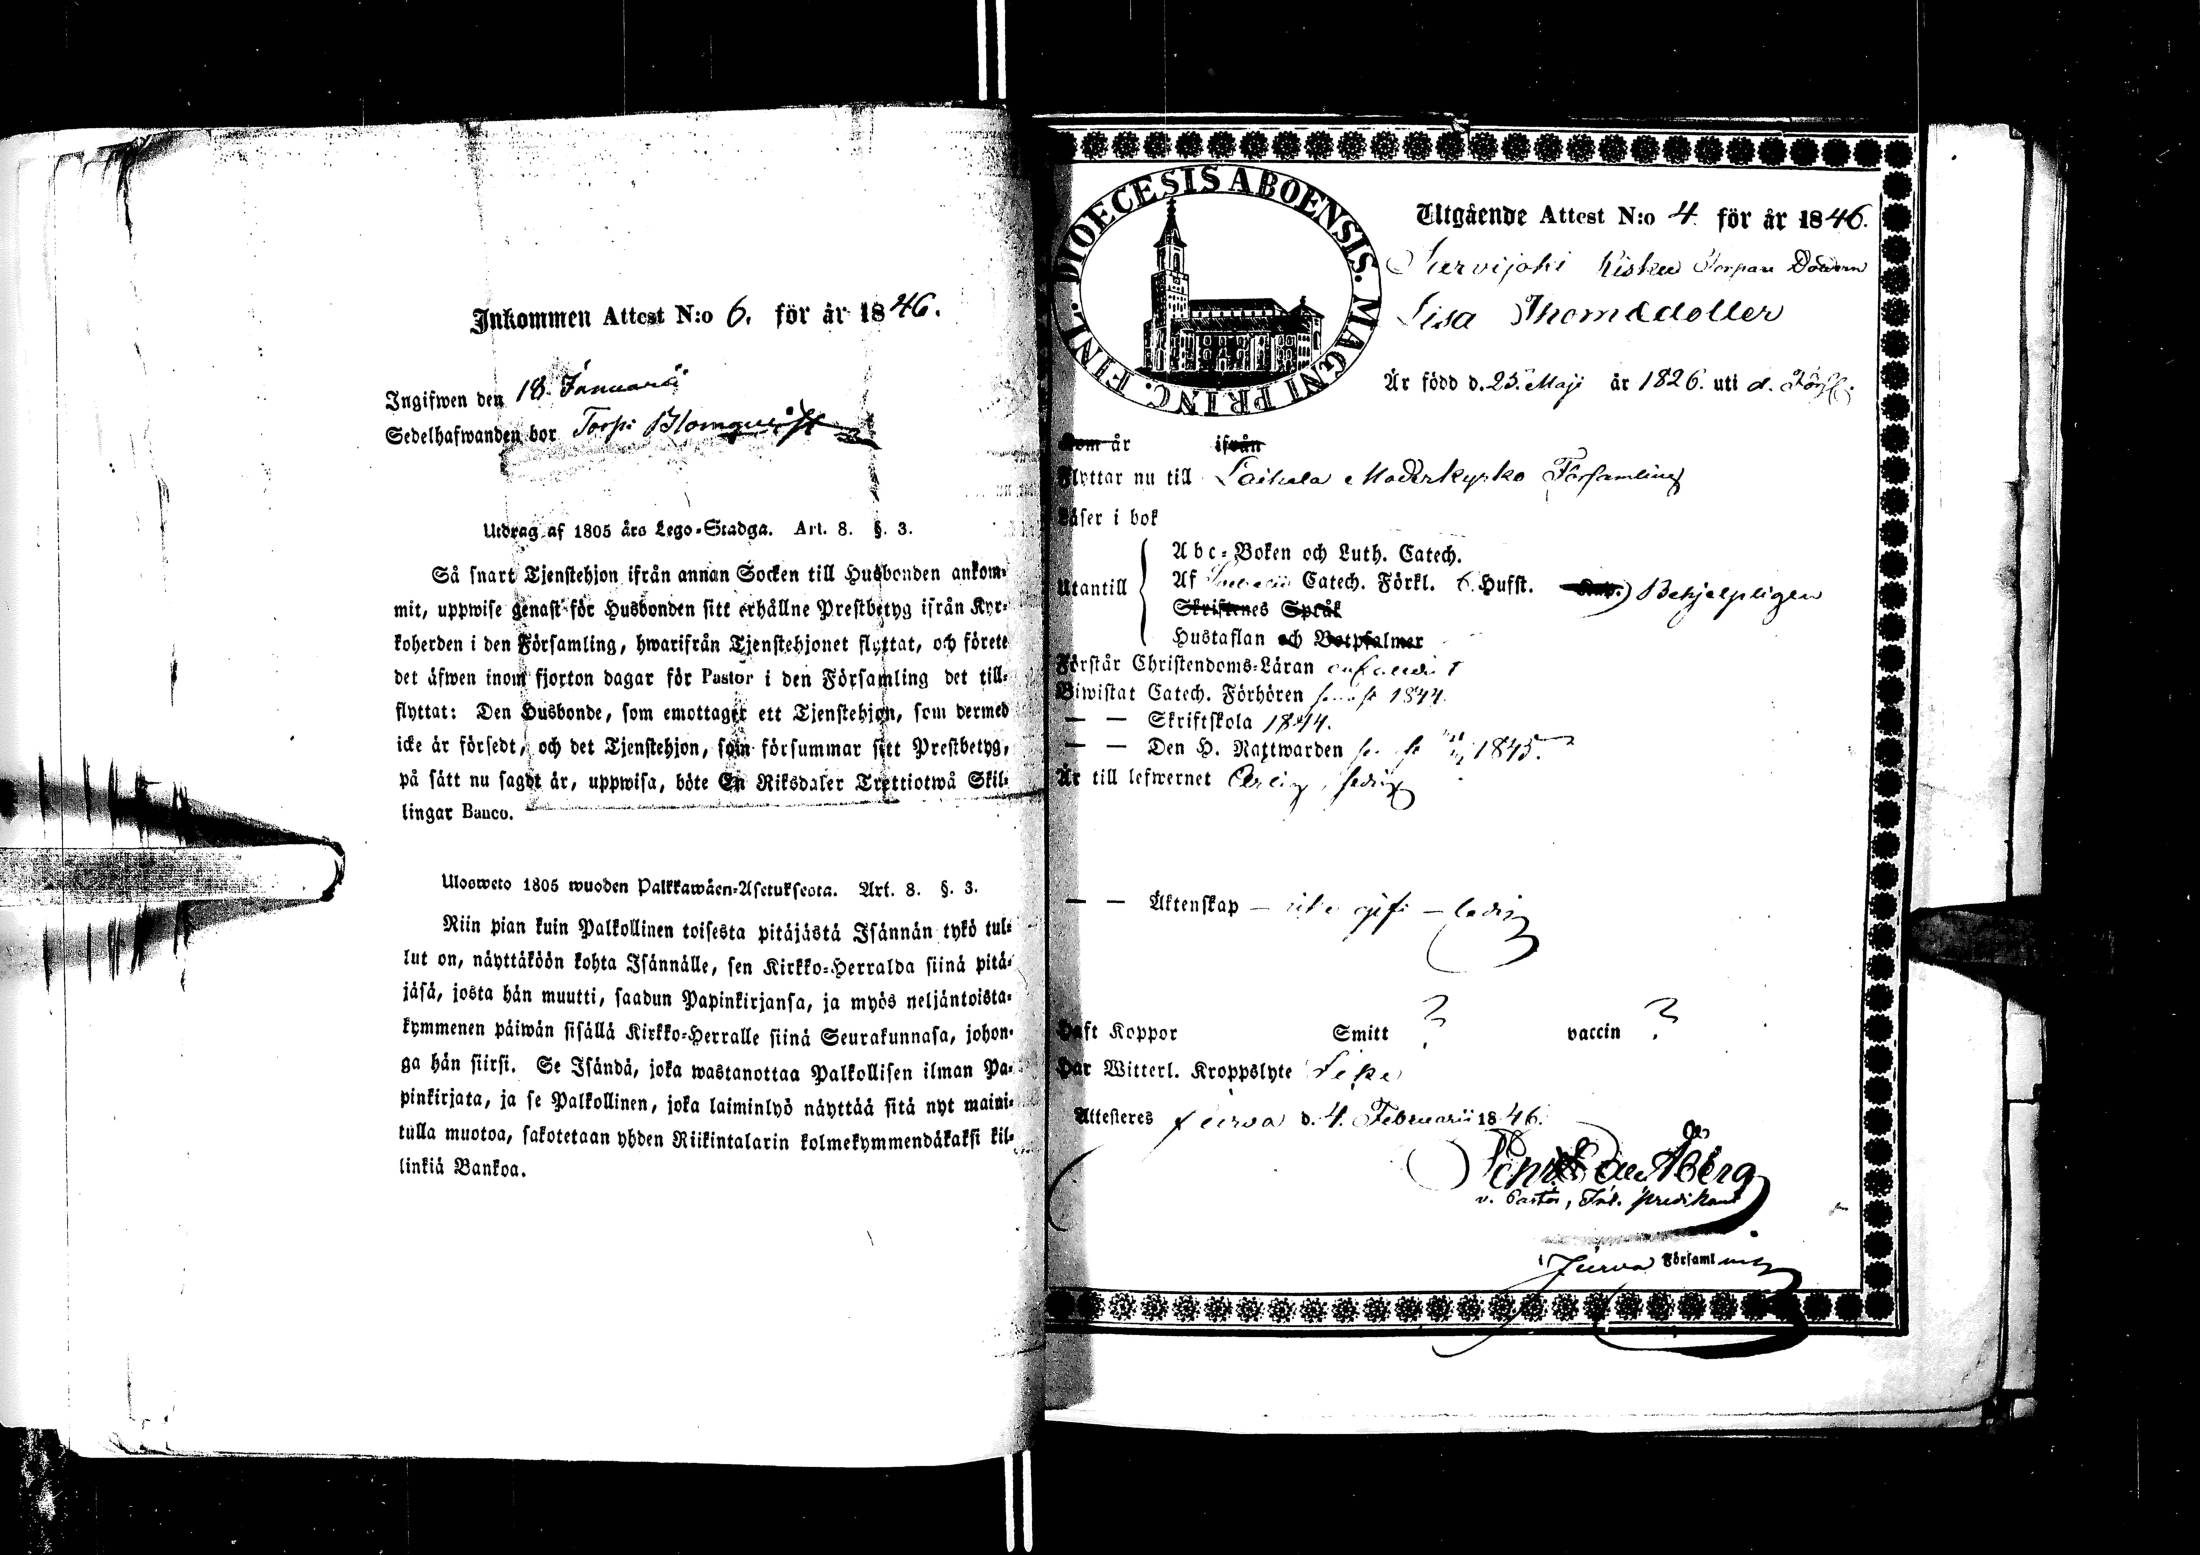 Inkommen Attest N:o 6. för år 1846.
Ingifwen den 18. Januarii
Sedelhafwanden bor Torp: Blomqvist
Utdrag af 1805 års Lego-Stadga. Art. 8. §. 3.
Så snart Tjenstehjon ifrån annan Socken till Husbonden ankom-
mit, uppwise genast för Husbonden sitt erhållne Prestbetyg ifrån Kyr-
koherden i den Församling, hwarifrån Tjenstehjonet flyttat, och förete
det äfwen inom fjorton dagar för Pastor i den Församling det till-
flyttat: Den Husbonde, som emottager ett Tjenstehjon, som dermed
icke är försedt, och det Tjenstehjon, som försummar sitt Prestbetyg,
på sätt nu sagdt är, uppwisa, böte En Riksdaler Trettiotwå Skil-
lingar Banco.
Ulosweto 1805 wuoden Palkkawäen-Asetuksesta. Art. 8. §. 3.
Niin pian kuin Palkollinen toisesta pitäjästä Isännän tykö tul-
lut on, näyttäköön kohta Isännälle, sen Kirkko-Herralda siinä pitä-
jäsä, josta hän muutti, saadun Papinkirjansa, ja myös neljäntoista-
kymmenen päiwän sisällä Kirkko-Herralle siinä Seurakunnasa, johon-
ga hän siirsi. Se Isändä, joka wastanottaa Palkollisen ilman Pa-
pinkirjata, ja se Palkollinen, joka laiminlyö näyttää sitä nyt maini-
tulla muotoa, sakotetaan yhden Riikintalarin kolmekymmendäkaksi kil-
linkiä Bankoa.
DIOECESIS ABOENSIS. MAGNI PRINC. FINL.
Utgående Attest N:o 4. för år 1846.
Särvijoki Kisku Torpare Dottern
Lisa Thomædotter
Är född d. 25. Maji år 1826. uti d. Förs.
Kom år ifrån
Flyttar nu till Laihela Moderkyrko Församling
Läser i bok
Utantill
Abc-Boken och Luth. Catech.
Af Catech. Förkl. 6. Hufst. Behjelpligen
Skriftenes Språk
Hustaflan och Botpsalmer
Förstår Christendoms-Läran enfaldigt
Biwistat Catech. Förhören senast 1844.
— — Skriftskola 1844.
— — Den H. Nattwarden 1845.
Är till lefwernet Ärlig, ledig
— — Äktenskap — icke gift — ledig
Haft Koppor Smitt ? vaccin ?
Har Witterl. Kroppslyte
Attesteres Jurva d. 4. Februarii 1846.
Åberg
v. Pastor, predikant
i Jurva Församling